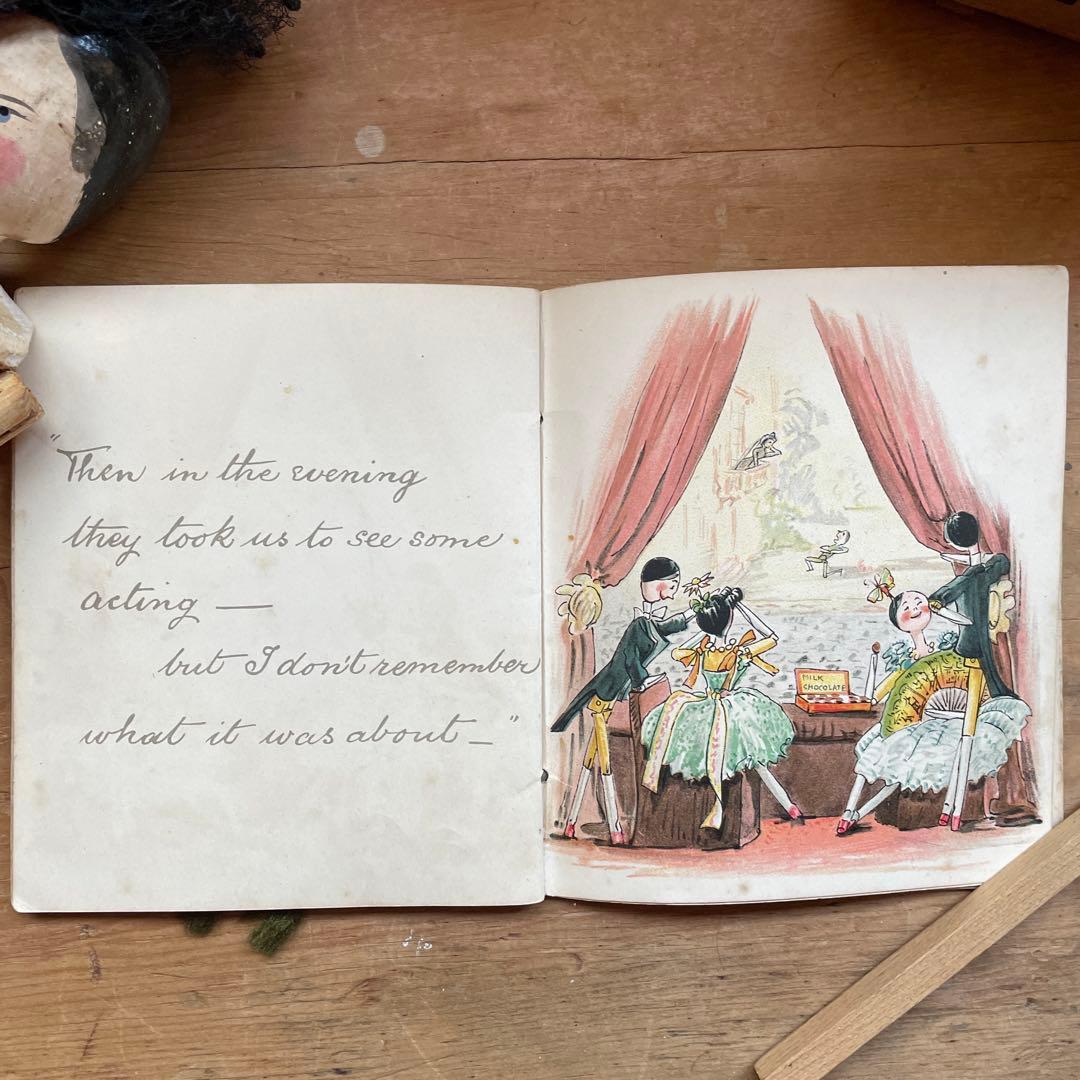 "Then in the evening
they took us to see some
acting —
but I don't remember
what it was about —"
MILK
CHOCOLATE